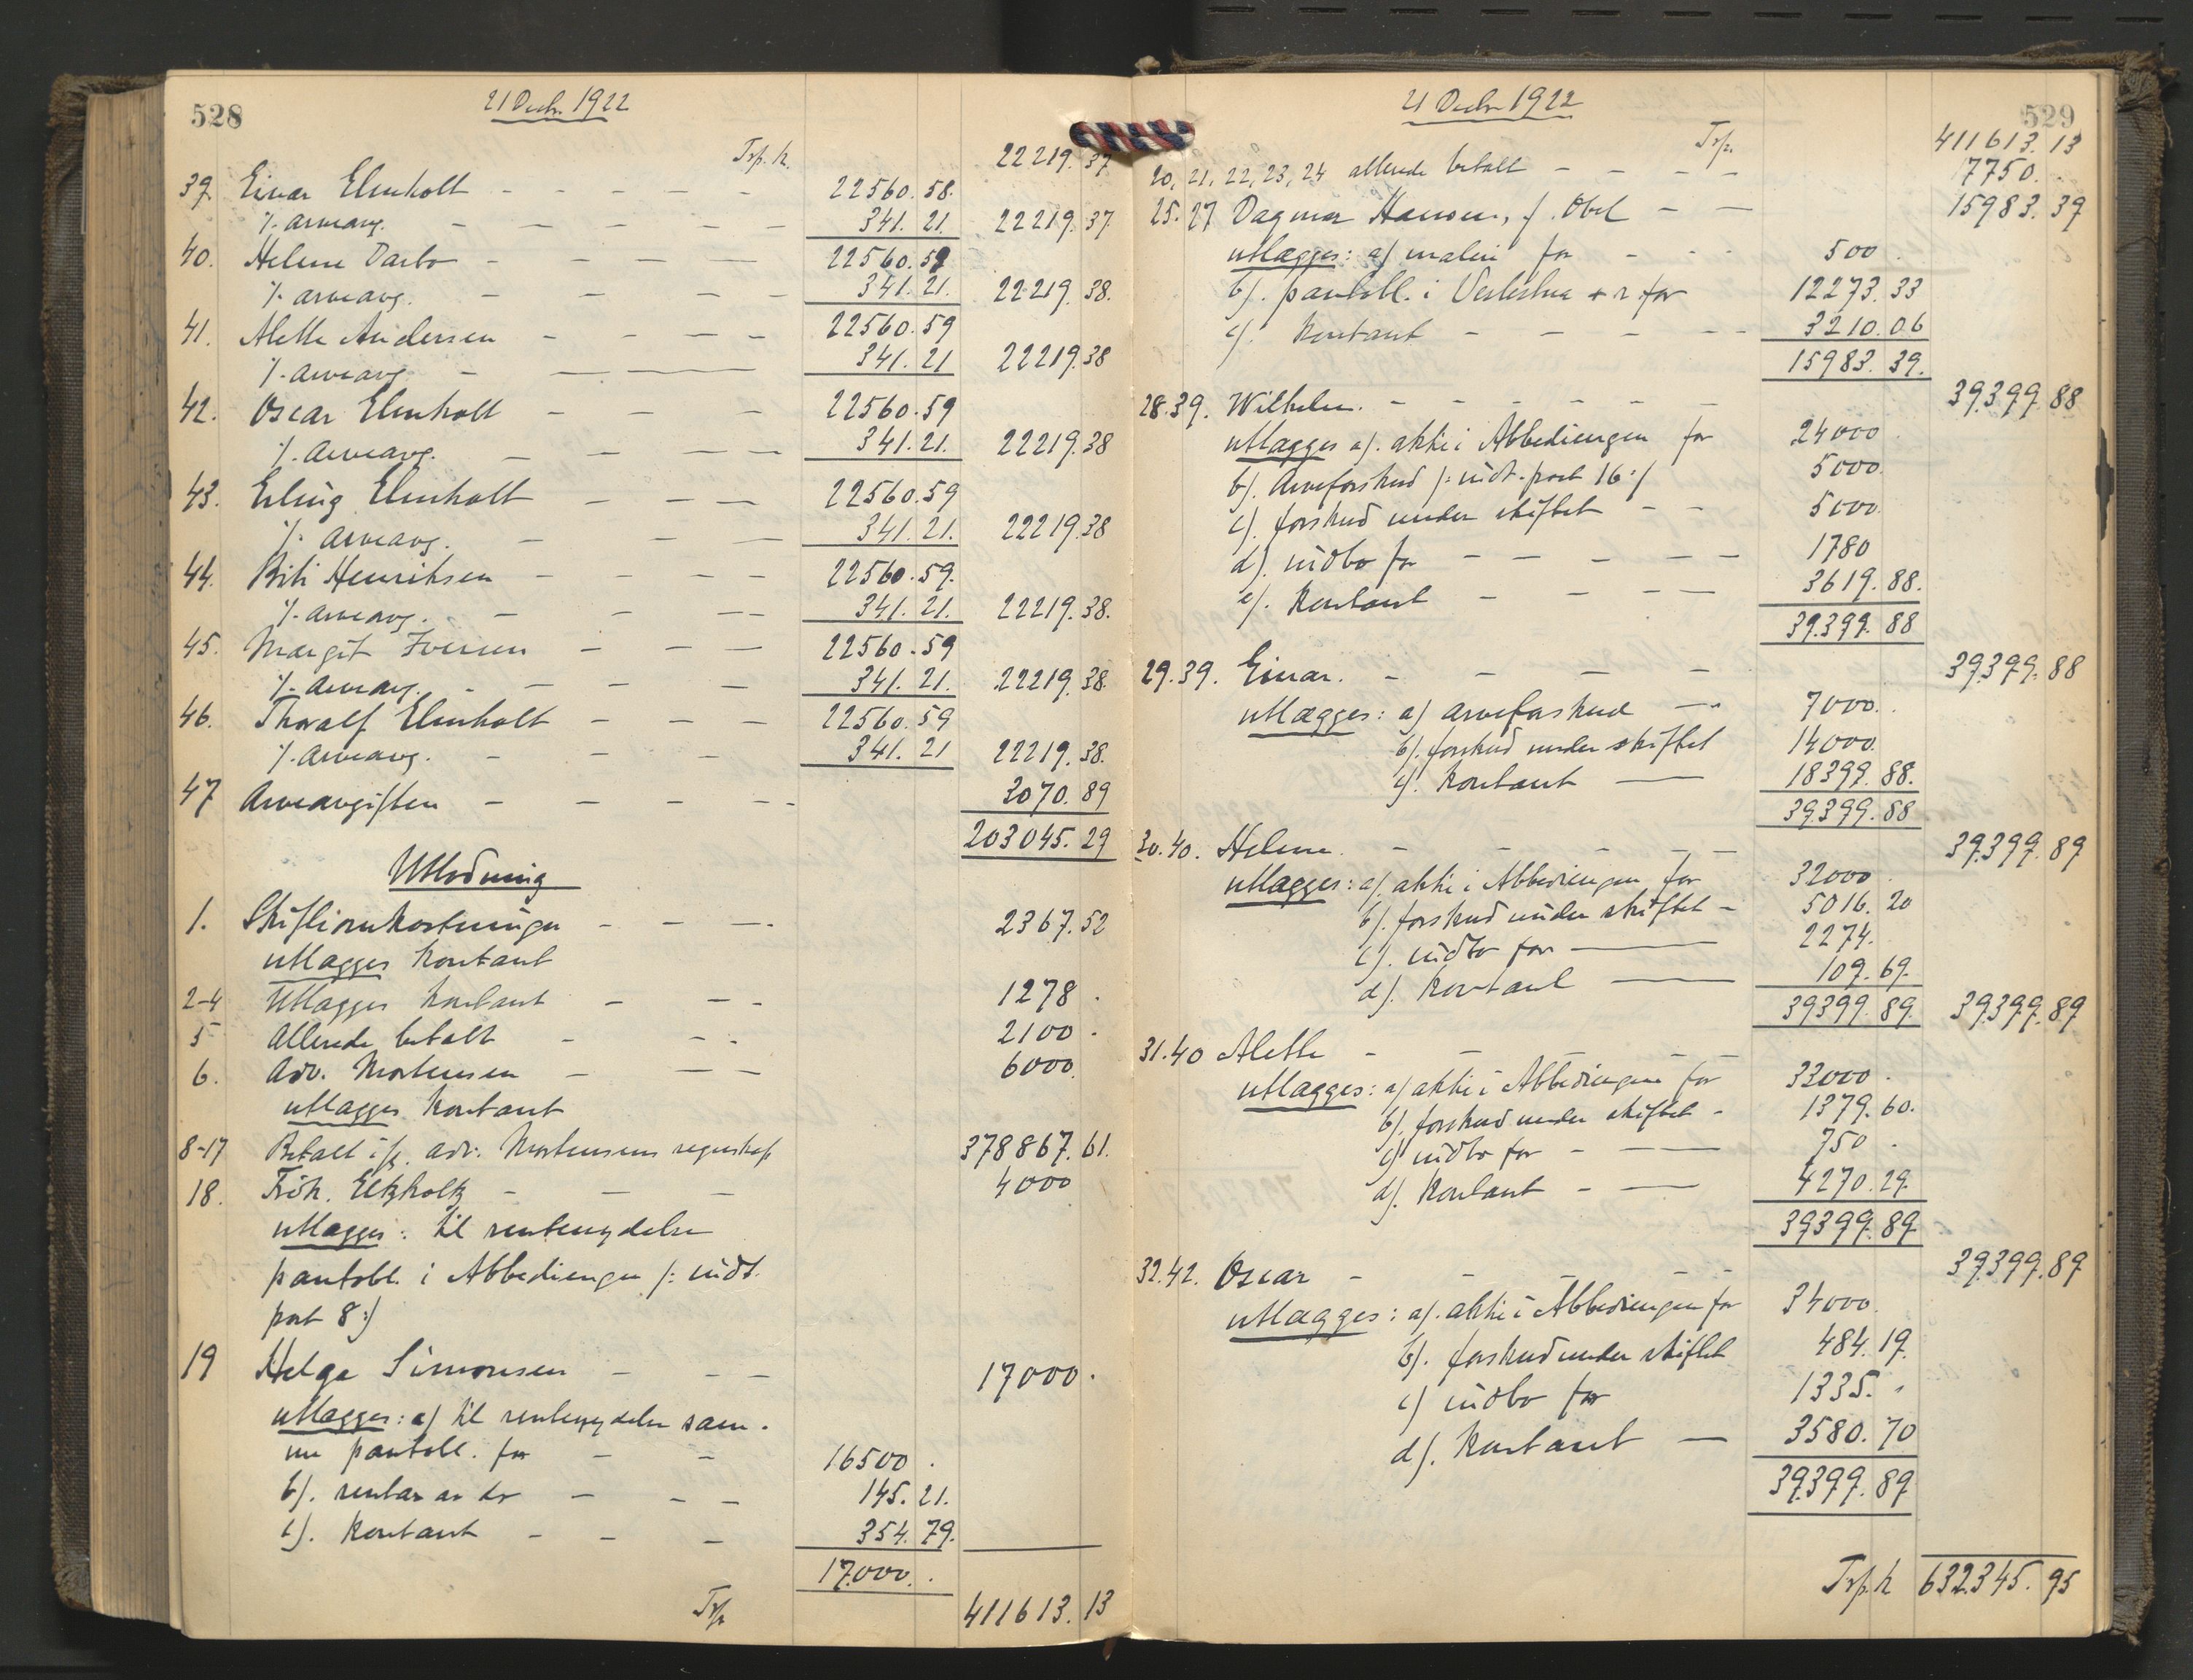 528
21 Decbr. 1922
Trp. k. 22219. 37
39 Einar Elmholt - - - - - 22560. 58.
÷ arveavg. - - - - - 341. 21. 22219. 37
40. Helene Darbo - - - - 22560. 59
÷ arveavg. - - - - 341. 21. 22219. 38.
41. Alette Andersen - - - - 22560. 59
÷ arveavg. - - - 341. 21 22219. 38
42. Oscar Elmholt - - - 22560. 59
÷ Arveavg. - - - - 341. 21. 22219. 38
43. Erling Elmholt - - - 22560. 59
÷ Arveavg. - - - 341. 21. 22219. 38
44. Bibi Henriksen - - - - 22560. 59.
÷ arveavg. - - - 341. 21. 22219. 38.
45. Margit Iversen - - - 22560. 59
÷ Arveavg. - - - 341. 21. 22219. 38.
46. Thoralf Elmholt - - - 22560. 59
÷ Arveavg. - - - 341. 21 22219. 38.
47 Arveavgiften - - - - 3070. 89
203045. 29
Utlodning
1. Skifteomkostninger - - - 2367. 52
utlægges kontant
2-4 Utlægges kontant - - - 1278 .
5 Allerede betalt - - - 2100 .
6. Adv. Mortensen - - - 6000
utlægges kontant
8-17 Betalt ifg. adv. Mortensens regnskap 378867. 61.
18. Frøk. Elkholtz - - - 4000
utlægges: til rentenydelse
pantobl. i Abbediengen /: indt.
post 8:/
19 Helga Simonsen - - - 17000 .
utlægges: a/ til rentenydelse sam-
me pantobl. for - - 16500 .
b/. renter av do - - - 145. 21.
c/. kontant - - - 354. 79.
17.000. .
Trp 411613. 13
529
21 Decbr 1922
Trp. 411613. 13
20, 21, 22, 23, 24 allerede betalt - - - - 7750. .
25. 27 Dagmar Hansen, f. Obel - - 15983. 39
utlægges: a/ maleri for - - - 500 .
b/. pantobl. i Vestestua + r. for 12273. 33
c/. kontant - - - - - 3210. 06
15983. 39.
28. 39. Wilhelm. - - - - - - 39.399. 88
utlægges a/. aktie i Abbediengen for 24000 .
b/. Arveforskud /: indt. post 16:/ 5000.
c/. forskud under skiftet - - 5000.
d/. indbo for - - - - - - 1780
e/. kontant - - - - 3619. 88.
39.399. 88
29. 39. Einar. - - - - 39.399. 88
utlægges: a/ arveforskud - 7000. .
b/. forskud under skiftet 14000.
c/. kontant - 18399. 88.
39.399. 88
30. 40. Helene. - - - - - 39.399. 89
utlægges: a/. aktie i Abbediengen for 32000 .
b/. forskud under skiftet - 5016. 20
c/. indbo for - 2274.
d/. kontant - 109. 69.
39399. 89. 39.399. 89
31. 40 Alette - - - - -
utlægges: a/ aktie i Abbediengen for 33000 .
b/. forskud under skiftet - 1379. 60.
c/ indbo for - - 750 .
d/. kontant - - 4270. 29.
39399. 89
32. 42. Oscar - - - - - 39.399. 89
utlægges: a/. aktie i Abbediengen for 34000.
b/. forskud under skiftet 484. 19.
c/ indbo for 1335. .
d/. kontant - 3580. 70
39.399. 89
Trp. k 632345. 95